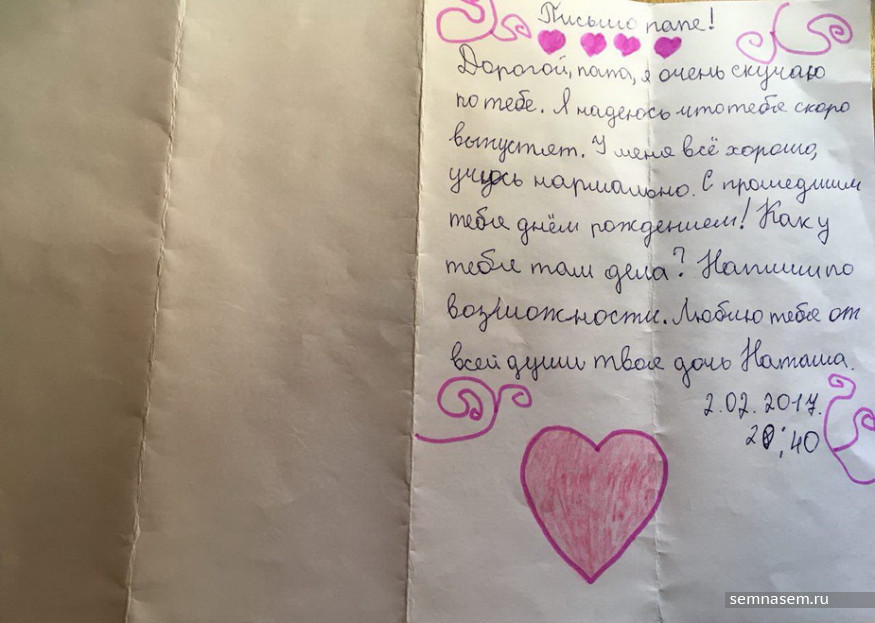 Письмо папе!
Дорогой, папа, я очень скучаю
по тебе. Я надеюсь что тебя скоро
выпустят. У меня всё хорошо,
учусь нормально. С прошедшим
тебя днём рождением! Как у
тебя там дела? Напиши по
возможности. Люблю тебя от
всей души твоя дочь Наташа.
2.02.2017.
20:40
semnasem.ru